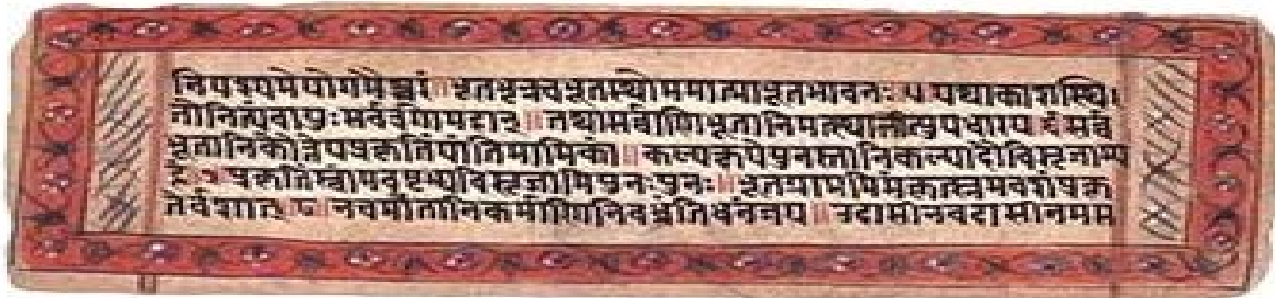 निपश्यमेयोगमैश्वरं ॥ भूतभृन्नचभूतस्थोममात्माभूतभावनः ५ यथाकाशस्थि
तोनित्यंवायुः सर्वत्रगोमहान् ॥ तथासर्वाणिभूतानिमत्स्थानीत्युपधारय ६ सर्व
भूतानिकौंतेयप्रकृतिंयांतिमामिकां ॥ कल्पक्षयेपुनस्तानिकल्पादौविसृजाम्य
हं ७ प्रकृतिंस्वामवष्टभ्यविसृजामिपुनःपुनः ॥ भूतग्राममिमंकृत्स्नमवशंप्रकृ
तेर्वशात् ८ नचमांतानिकर्माणिनिबध्नंतिधनंजय ॥ उदासीनवदासीनमस